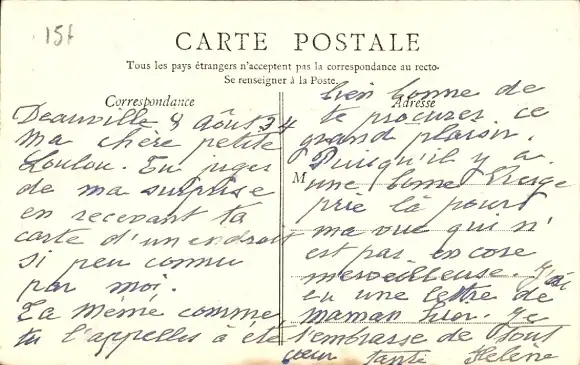 15f
CARTE POSTALE
Tous les pays étrangers n'acceptent pas la correspondance au recto.
Se renseigner à la Poste.
Correspondance
Deauville 8 Août 34
Ma chère petite
Loulou. Tu juges
de ma surprise
en recevant ta
carte d'un endroit
si peu connu
par moi.
La Mémé comme
tu l'appelles a été
Adresse
bien bonne de
te procurer ce
grand plaisir.
Puisqu'il y a
M
une bonne Vierge
prie là pour
ma vue qui n'
est pas encore
merveilleuse. J'ai
eu une lettre de
maman hier. Je
t'embrasse de tout
cœur tante Hélène